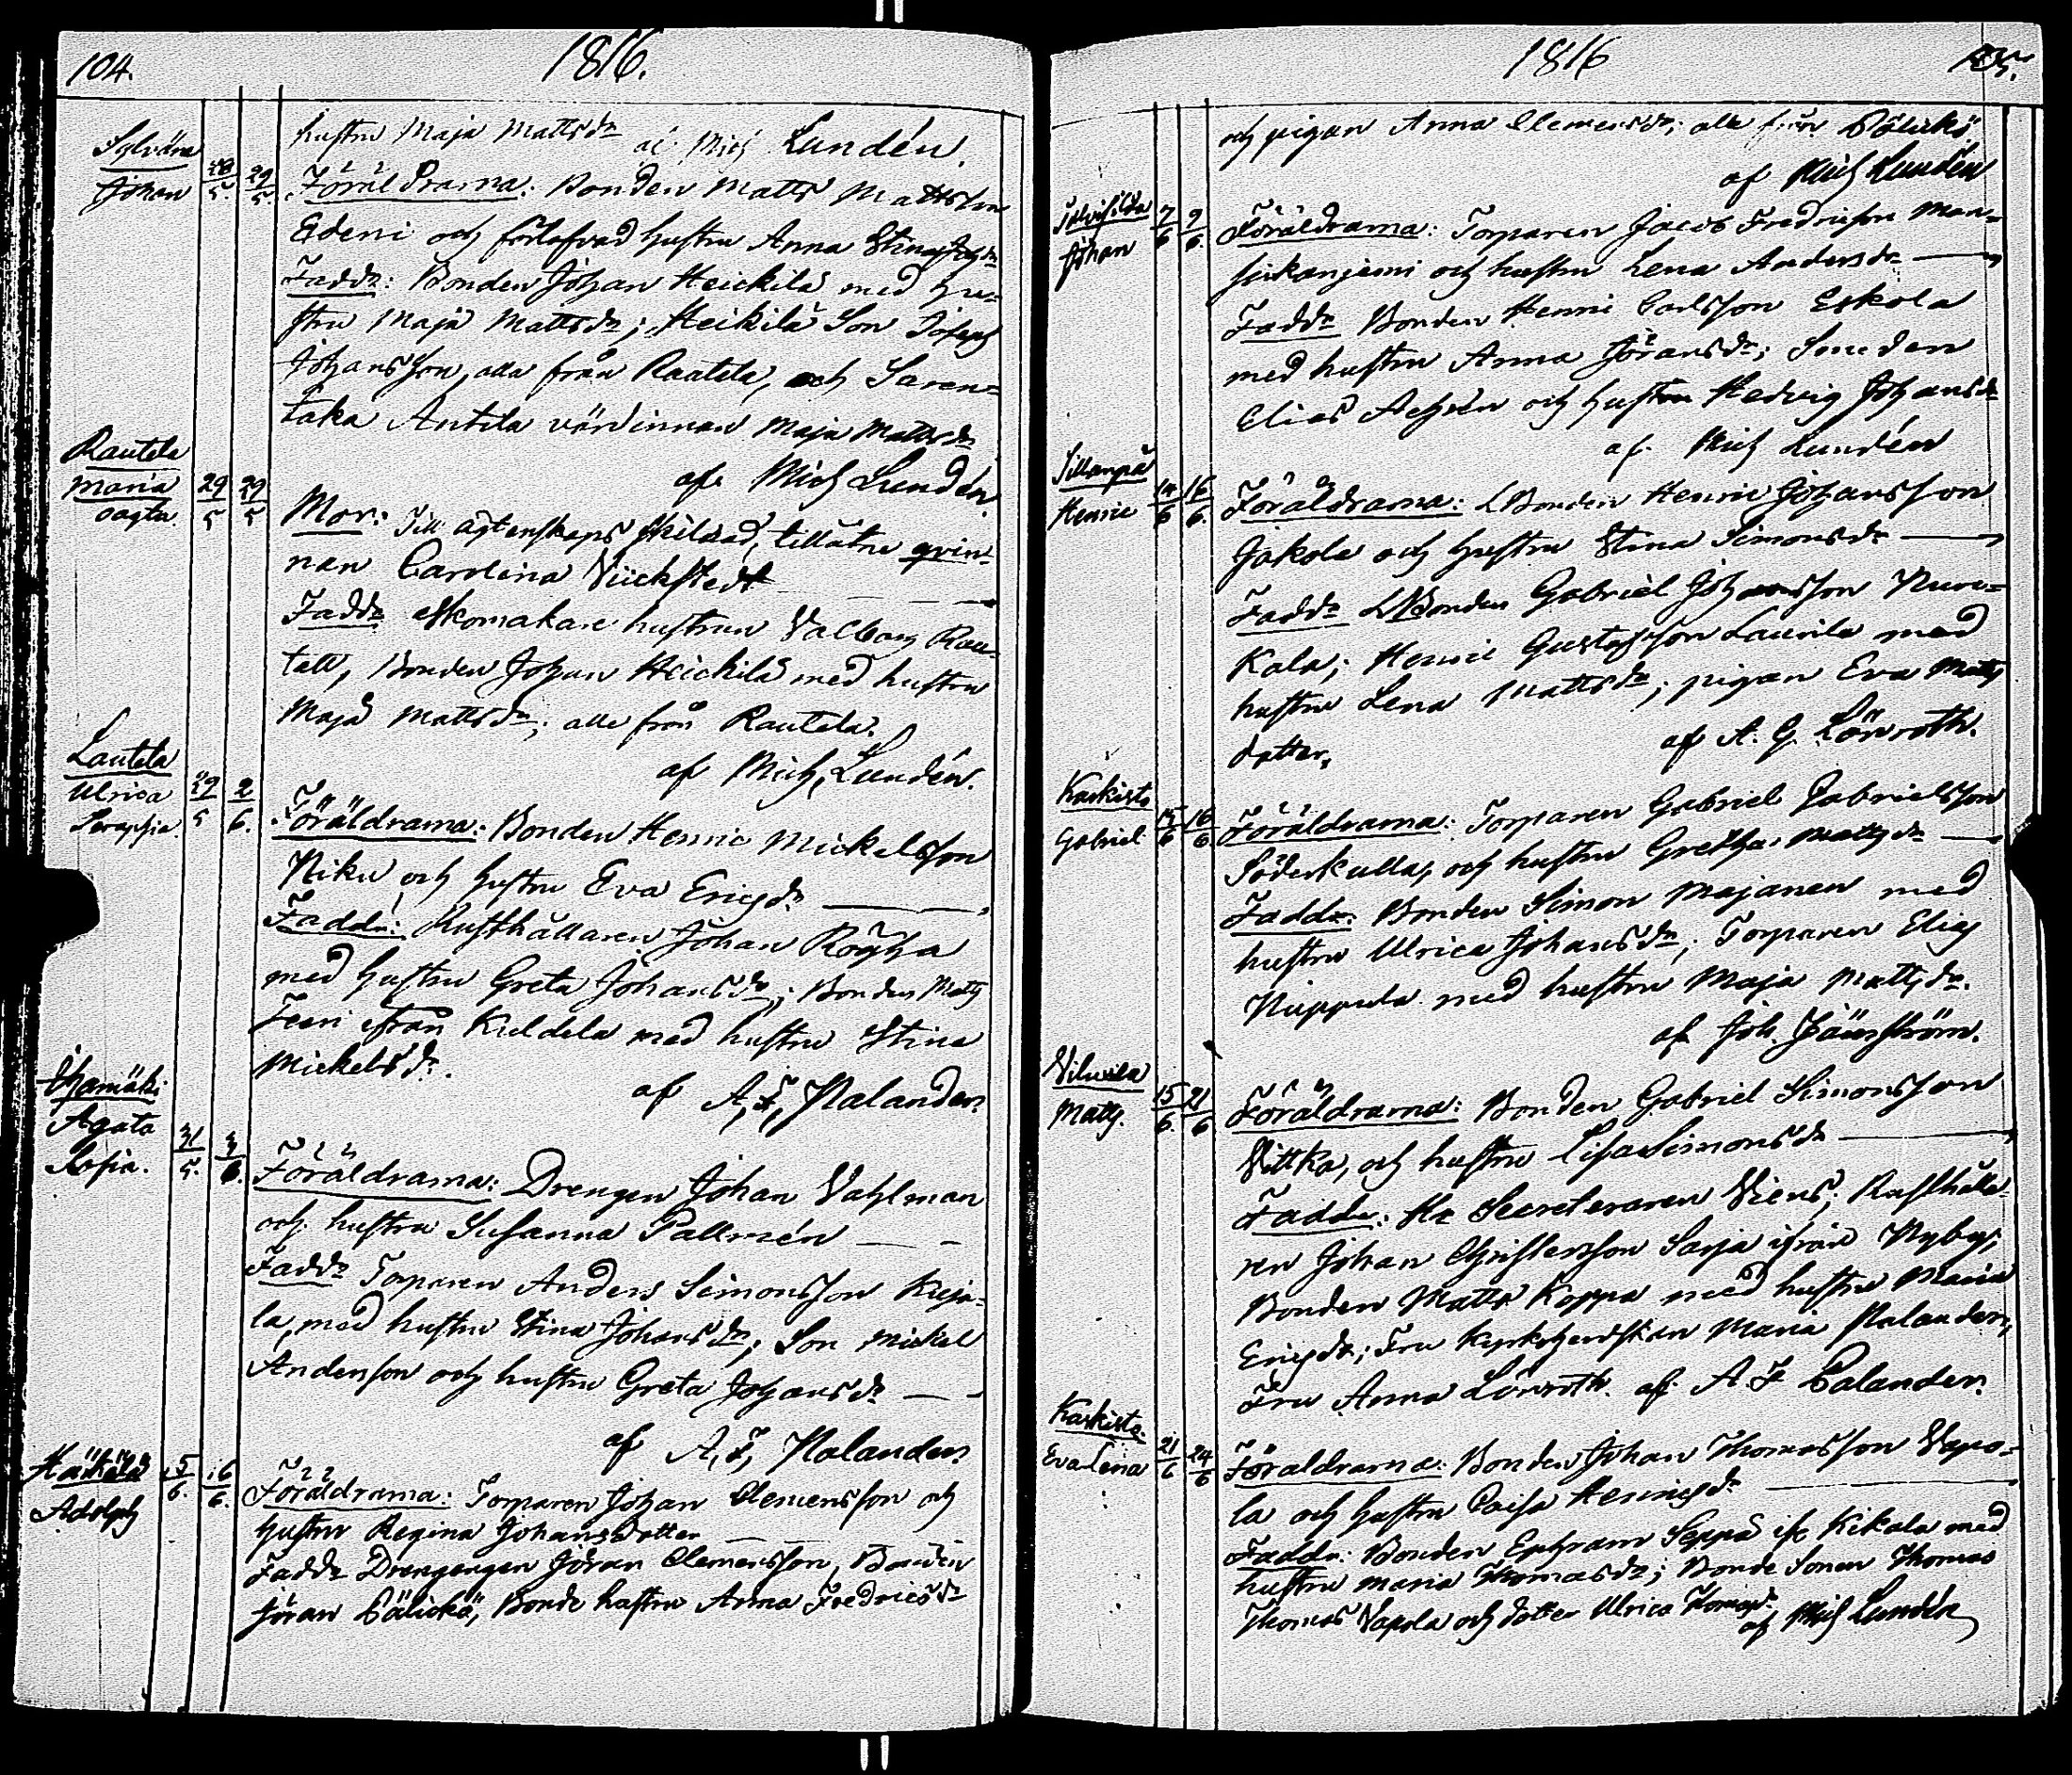 104.
1816.
hustru Maja Mattsdr
af Mich Lundén.
Sylvāna
Johan
28/5. 29/5.
Föräldrarna: Bonden Matts Mattsson
Edeni och förlofvad hustru Anna Stina Johdr
Faddr: Bonden Johan Heickilä med hu-
stru Maja Mattsdr; Heikilä Son Joseph
Johansson, alla från Rautela, och Saren-
taka Antila värdinnan Maja Mattsdr
af Mich Lundén.
Rautela
Maria
oägta.
29/5 29/5
Mor: Till ägtenskaps skillnad tillåtne qvin-
nan Carolina Vückstedt
Faddr Skomakare hustrun Valborg Rau-
tell, Bonden Johan Heickilä med hustru
Maja Mattsdr; alla från Rautela.
af Mich. Lundén.
Lautela
Ulrica
Seraphia
29/5 2/6.
Föräldrarna: Bonden Henric Mickelsson
Niku och hustru Eva Ericsdr
Faddr: Rusthållaren Johan Röyhä
med hustru Greta Johansdr; Bonden Matts
Feeri ifrån Kuldela med hustru Stina
Mickelsdr.
af A. F. Palander.
Ojhamäki
Agata
Sofia.
31/5. 3/6.
Föräldrarna: Drengen Johan Vahlman
och hustru Susanna Pallmén
Faddr Torparen Anders Simonsson Kieja-
la, med hustru Stina Johansdr; Son Mickel
Andersson och hustru Greta Johansdr
af A. F. Palander.
Häikälä
Adolph
5/6. 16/6.
Föräldrarna: Torparen Johan Clemensson och
hustru Regina Johansdotter
Faddr Drengen Jöran Clemensson, Bonden
Jöran Pälickö, Bonde hustru Anna Fredricsdr
1816
105.
och pigan Anna Clemensdr; alla från Pälickö
af Mich Lundén
Johan
7/6 9/6.
Föräldrarna: Torparen Jacob Fredricsson Man-
sikanjemi och hustru Lena Andersdr
Faddr Bonden Henric Carlsson Eskola
med hustru Anna Jöransdr; Smeden
Elias Achrén och hustru Hedvig Johansdr
af Mich Lundén
Sillanpä
Henric
14/6 16/6.
Föräldrarna: Bonden Henric Johansson
Jakola och hustru Stina Simonsdr
Faddr Bonden Gabriel Johansson Nuro-
kala; Henric Gustafsson Laurila med
hustru Lena Mattsdr; pigan Eva Matts
dotter.
af A. G. Lönroth.
Kaskisto
Gabriel
15/6 16/6.
Föräldrarna: Torparen Gabriel Gabrielsson
Söderkulla, och hustru Gretha Mattsdr
Faddr. Bonden Simon Majanen med
hustru Ulrica Johansdr; Torparen Elias
Nuppula med hustru Maja Mattsdr.
af Joh. Fäuström.
Viluxela
Matts.
15/6. 21/6
Föräldrarna: Bonden Gabriel Simonsson
Vittka, och hustru Lisa Simonsdr
Faddr: Hr Secreteraren Viens; Rusthålla-
ren Johan Christersson Sarja ifrån Nyby;
Bonden Matts Koppa med hustru Maria
Ericsdr; Fru Kyrkoherdskan Maria Palander,
Fru Anna Lönroth. af A. F. Palander.
Kaskisto.
Eva Lena
21/6 24/6
Föräldrarna: Bonden Johan Thomasson Vapo-
la och hustru Caisa Henricsdr
Faddr: Bonden Ephram Seppä ifr Kikala med
hustru Maria Thomasdr; Bonde Sonen Thomas
Thomas Vapola och dotter Ulrica Thomasdr.
af Mich Lundén